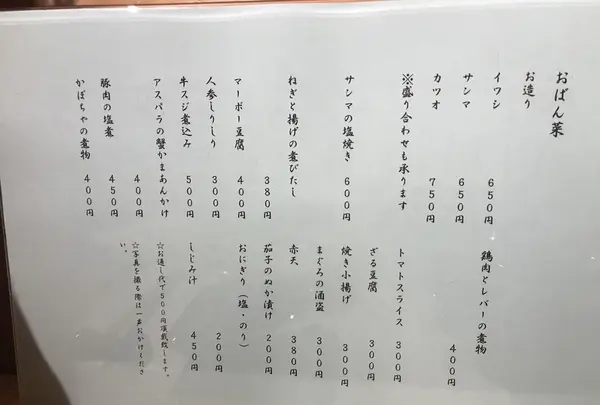 おばん菜
お造り
イワシ 650円
サンマ 650円
カツオ 750円
※盛り合わせも承ります
サンマの塩焼き 600円
ねぎと揚げの煮びたし 380円
マーボー豆腐 400円
人参しりしり 300円
牛スジ煮込み 500円
アスパラの蟹かまあんかけ 400円
豚肉の塩煮 450円
かぼちゃの煮物 400円
鶏肉とレバーの煮物 400円
トマトスライス 300円
ざる豆腐 300円
焼き小揚げ 300円
まぐろの酒盗 300円
赤天 380円
茄子のぬか漬け 200円
おにぎり（塩・のり） 200円
しじみ汁 450円
☆お通し代で500円頂戴致します。
☆写真を撮る際は一声おかけくださ
い。